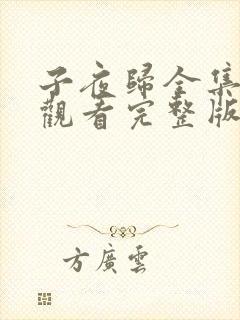 子夜歸全集
觀看完整版
方廣雲